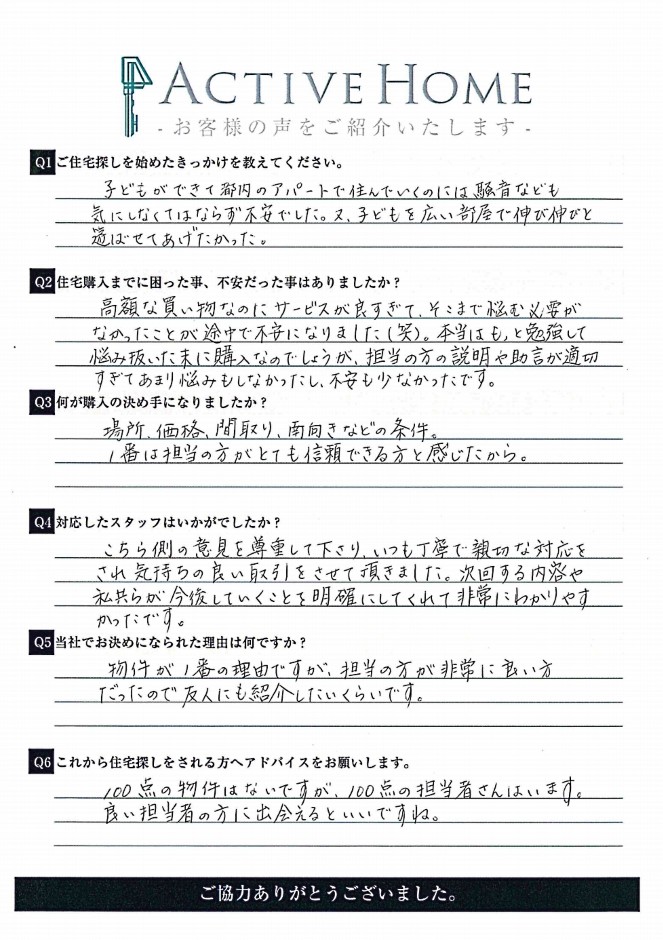 ACTIVE HOME
- お客様の声をご紹介いたします -
Q1 ご住宅探しを始めたきっかけを教えてください。
子どもができて都内のアパートで住んでいくのには騒音なども
気にしなくてはならず不安でした。又、子どもを広い部屋で伸び伸びと
遊ばせてあげたかった。
Q2 住宅購入までに困った事、不安だった事はありましたか？
高額な買い物なのにサービスが良すぎて、そこまで悩む必要が
なかったことが途中で不安になりました(笑)。本当はもっと勉強して
悩み抜いた末に購入なのでしょうが、担当の方の説明や助言が適切
すぎてあまり悩みもしなかったし、不安も少なかったです。
Q3 何が購入の決め手になりましたか？
場所、価格、間取り、南向きなどの条件。
1番は担当の方がとても信頼できる方と感じたから。
Q4 対応したスタッフはいかがでしたか？
こちら側の意見を尊重して下さり、いつも丁寧で親切な対応を
され気持ちの良い取引をさせて頂きました。次回する内容や
私共らが今後していくことを明確にしてくれて非常にわかりやす
かったです。
Q5 当社でお決めになられた理由は何ですか？
物件が1番の理由ですが、担当の方が非常に良い方
だったので友人にも紹介したいくらいです。
Q6 これから住宅探しをされる方へアドバイスをお願いします。
100点の物件はないですが、100点の担当者さんはいます。
良い担当者の方に出会えるといいですね。
ご協力ありがとうございました。